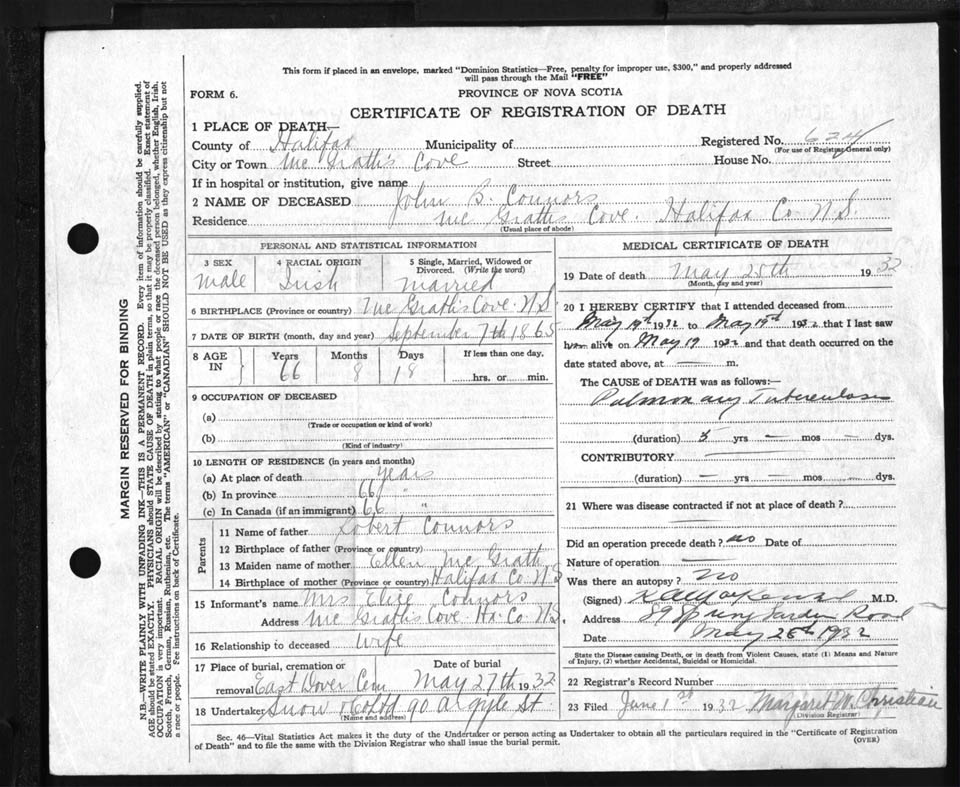 This form if placed in an envelope, marked "Dominion Statistics—Free, penalty for improper use, $300," and properly addressed
will pass through the Mail "FREE"
FORM 6.
PROVINCE OF NOVA SCOTIA
CERTIFICATE OF REGISTRATION OF DEATH
1 PLACE OF DEATH—
County of Halifax Municipality of Registered No. 624
(For use of Registrar General only)
City or Town Mc Grath's Cove Street House No.
If in hospital or institution, give name
2 NAME OF DECEASED John B. Connors
Residence Mc Grath's Cove. Halifax Co. N.S
(Usual place of abode)
PERSONAL AND STATISTICAL INFORMATION
3 SEX
male
4 RACIAL ORIGIN
Irish
5 Single, Married, Widowed or
Divorced. (Write the word)
married
6 BIRTHPLACE (Province or country) Mc Grath's Cove. N.S.
7 DATE OF BIRTH (month, day and year) September 7th 1865
8 AGE
IN
Years
66
Months
8
Days
18
If less than one day,
hrs. or min.
9 OCCUPATION OF DECEASED
(a)
(Trade or occupation or kind of work)
(b)
(Kind of industry)
10 LENGTH OF RESIDENCE (in years and months)
(a) At place of death years
(b) In province 66 "
(c) In Canada (if an immigrant) 66 "
Parents
11 Name of father Robert Connors
12 Birthplace of father (Province or country)
13 Maiden name of mother Ellen Mc Grath
14 Birthplace of mother (Province or country) Halifax Co. N.S
15 Informant's name Mrs Connors
Address Mc Grath's Cove. Hx. Co. N.S.
16 Relationship to deceased wife
17 Place of burial, cremation or
removal East Dover Cem
Date of burial
May 27th 1932
18 Undertaker Snow 90 Argyle St
(Name and address)
MEDICAL CERTIFICATE OF DEATH
19 Date of death May 25th 1932
(Month, day and year)
20 I HEREBY CERTIFY that I attended deceased from
May 19th 1932 to May 19th 1932 that I last saw
him alive on May 19 1932 and that death occurred on the
date stated above, at — m.
The CAUSE OF DEATH was as follows:—
Pulmonary Tuberculosis
(duration) 5 yrs — mos — dys.
CONTRIBUTORY
(duration) — yrs — mos — dys.
21 Where was disease contracted if not at place of death?
Did an operation precede death? no Date of
Nature of operation —
Was there an autopsy? no
(Signed) M.D.
Address 89 Spring Garden Road
Date May 28th 1932
State the Disease causing Death, or in death from Violent Causes, state (1) Means and Nature
of Injury, (2) whether Accidental, Suicidal or Homicidal.
22 Registrar's Record Number
23 Filed June 1st 1932 Margaret W. Christian
Division Registrar
Sec. 46—Vital Statistics Act makes it the duty of the Undertaker or person acting as Undertaker to obtain all the particulars required in the "Certificate of Registration
of Death" and to file the same with the Division Registrar who shall issue the burial permit.
(OVER)
MARGIN RESERVED FOR BINDING
N.B.—WRITE PLAINLY WITH UNFADING INK—THIS IS A PERMANENT RECORD. Every item of information should be carefully supplied.
AGE should be stated EXACTLY. PHYSICIANS should STATE CAUSE OF DEATH in plain terms, so that it may be properly classified. Exact statement of
OCCUPATION is very important. RACIAL ORIGIN will be described by stating to what people or race the deceased person belonged, whether English, Irish,
Scotch, French, German, Russian, Ruthenian, etc. The terms "AMERICAN" or "CANADIAN" SHOULD NOT BE USED as they express citizenship but not
a race or people. Fee instructions on back of Certificate.